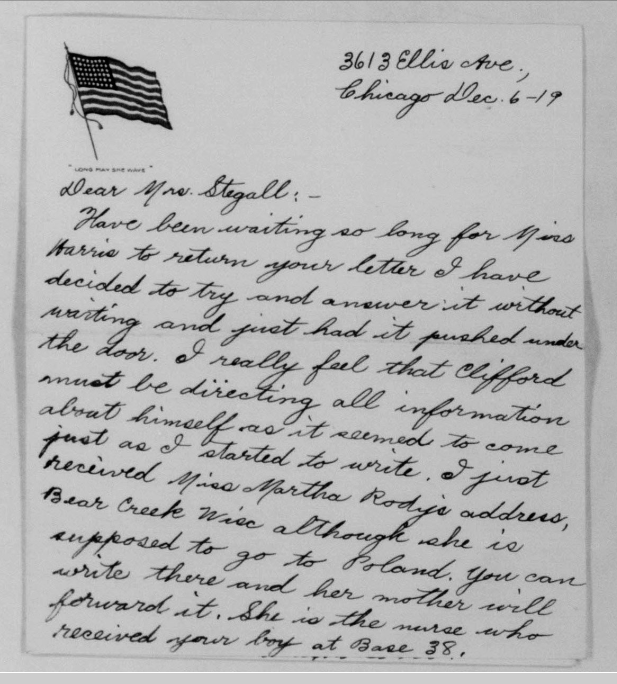 3613 Ellis Ave.,
Chicago Dec. 6-19
"LONG MAY SHE WAVE"
Dear Mrs. Stegall:-
Have been waiting so long for Miss
Harris to return your letter I have
decided to try and answer it without
waiting and just had it pushed under
the door. I really feel that Clifford
must be directing all information
about himself as it seemed to come
just as I started to write. I just
received Miss Martha Rody's address,
Bear Creek Wisc although she is
supposed to go to Poland. You can
write there and her mother will
forward it. She is the nurse who
received your boy at Base 38.